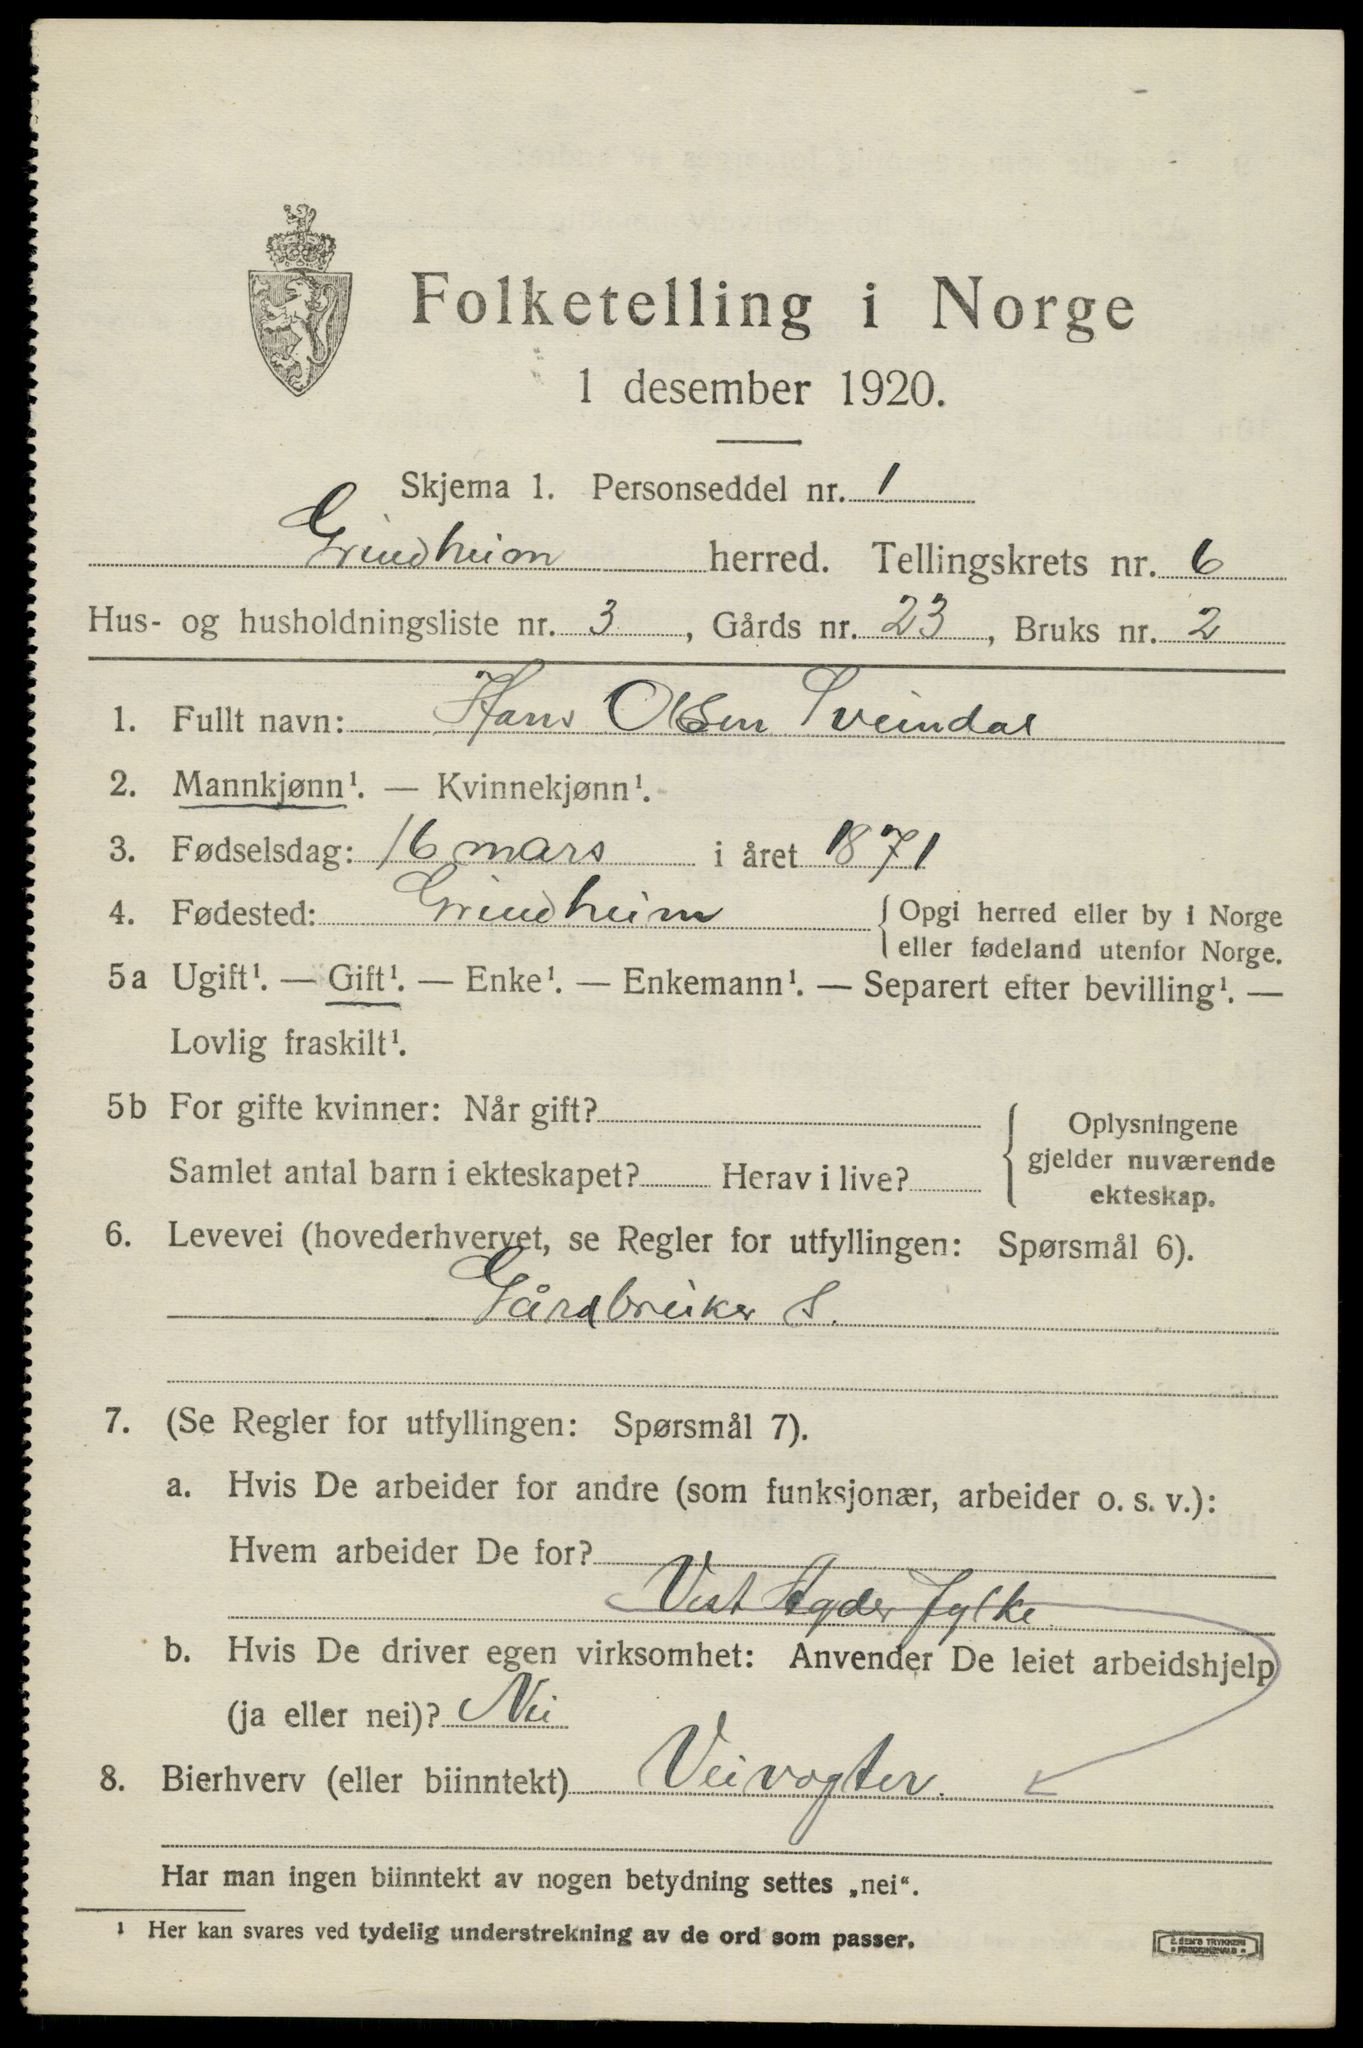 Folketelling i Norge
1 desember 1920.
Skjema 1. Personseddel nr. 1
Grindheim herred. Tellingskrets nr. 6
Hus- og husholdningsliste nr. 3, Gårds nr. 23, Bruks nr. 2
1. Fullt navn: Hans Olsen Sveindal
2. Mannkjønn¹. — Kvinnekjønn¹.
3. Fødselsdag: 16 mars i året 1871
4. Fødested: Grindheim { Opgi herred eller by i Norge
eller fødeland utenfor Norge.
5a Ugift¹. — Gift¹. — Enke¹. — Enkemann¹. — Separert efter bevilling¹. —
Lovlig fraskilt¹.
5b For gifte kvinner: Når gift?
Samlet antal barn i ekteskapet? Herav i live?
Oplysningene
gjelder nuværende
ekteskap.
6. Levevei (hovederhvervet, se Regler for utfyllingen: Spørsmål 6).
Gårdbruker S.
7. (Se Regler for utfyllingen: Spørsmål 7).
a. Hvis De arbeider for andre (som funksjonær, arbeider o. s. v.):
Hvem arbeider De for?
Vest Agder fylke
b. Hvis De driver egen virksomhet: Anvender De leiet arbeidshjelp
(ja eller nei)? Nei
8. Bierhverv (eller biinntekt) Veivogter.
Har man ingen biinntekt av nogen betydning settes „nei“.
¹ Her kan svares ved tydelig understrekning av de ord som passer.